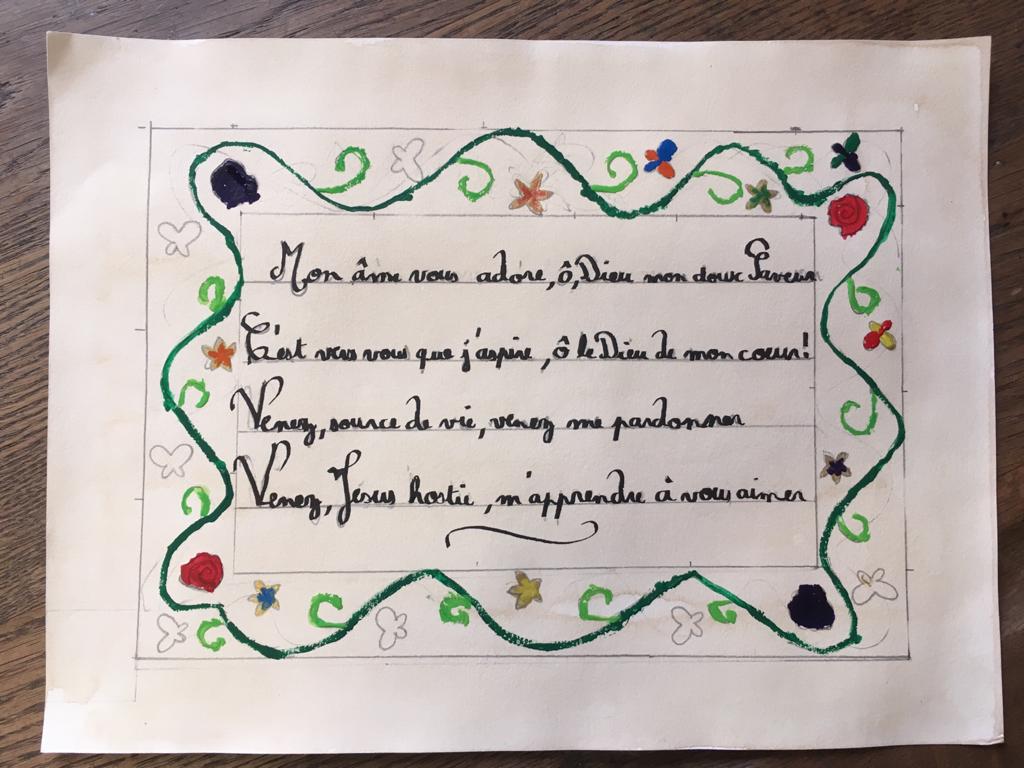 Mon âme vous adore, ô, Dieu mon doux Saveur
C'est vers vous que j'aspire, ô le Dieu de mon coeur!
Venez, source de vie, venez me pardonner
Venez, Jesus hostie, m'apprendre à vous aimer